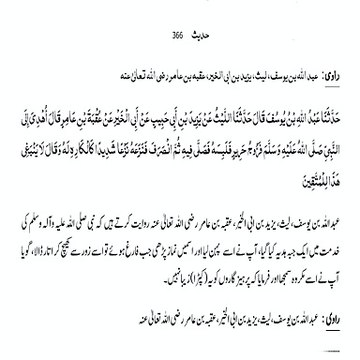 حدیث 366
راوی: عبد اللہ بن یوسف، لیث، یزید بن ابی الخیر، عقبہ بن عامر رضی اللہ تعالیٰ عنہ
حَدَّثَنَا عَبْدُ اللهِ بْنُ يُوسُفَ قَالَ حَدَّثَنَا اللَّيْثُ عَنْ يَزِيدَ بْنِ أَبِي حَبِيبٍ عَنْ أَبِي الْخَيْرِ عَنْ عُقْبَةَ بْنِ عَامِرٍ قَالَ أُهْدِيَ إِلَی
النَّبِيِّ صَلَّی اللهُ عَلَيْهِ وَسَلَّمَ فَرُّوجُ حَرِيرٍ فَلَبِسَهُ فَصَلَّی فِيهِ ثُمَّ انْصَرَفَ فَنَزَعَهُ نَزْعًا شَدِيدًا کَالْکَارِهِ لَهُ وَقَالَ لَا يَنْبَغِي
هَذَا لِلْمُتَّقِينَ
عبد اللہ بن یوسف، لیث، یزید بن ابی الخیر، عقبہ بن عامر رضی اللہ تعالیٰ عنہ روایت کرتے ہیں کہ نبی صلی اللہ علیہ وآلہ وسلم کی
خدمت میں ایک جبہ ہدیہ کیا گیا، آپ نے اسے پہن لیا اور اس میں نماز پڑھی جب فارغ ہوئے تو اسے زور سے کھینچ کر اتار ڈالا، گویا
آپ نے اسے مکروہ سمجھا اور فرمایا کہ پرہیزگاروں کو یہ (کپڑا) زیبا نہیں۔
راوی: عبد اللہ بن یوسف، لیث، یزید بن ابی الخیر، عقبہ بن عامر رضی اللہ تعالیٰ عنہ